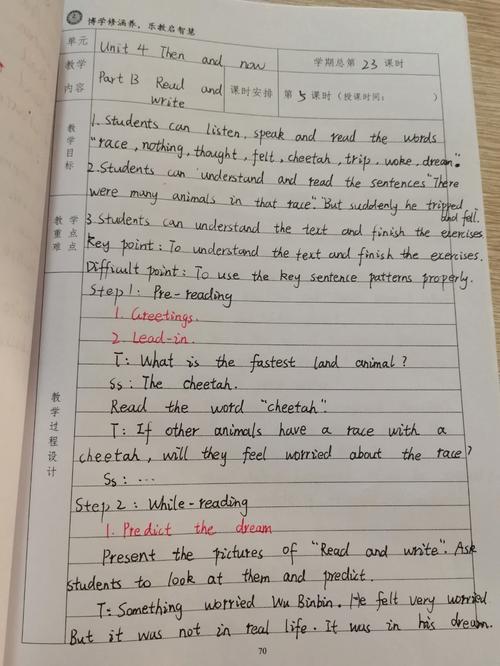 博学修涵养，乐教启智慧
单元
教学
内容
Unit 4 Then and now
Part B Read and
write
学期总第 23 课时
课时安排
第 5 课时（授课时间： ）
教学目标
1. Students can listen, speak and read the words
"race, nothing, thought, felt, cheetah, trip, woke, dream".
2. Students can understand and read the sentences "There
were many animals in that race." "But suddenly he tripped
and fell."
3. Students can understand the text and finish the exercises.
教学
重点
难点
Key point: To understand the text and finish the exercises.
Difficult point: To use the key sentence patterns properly.
教学过程设计
Step 1: Pre-reading
1. Greetings.
2. Lead-in.
T: What is the fastest land animal?
Ss: The cheetah.
Read the word "cheetah".
T: If other animals have a race with a
cheetah, will they feel worried about the race?
Ss: ...
Step 2: While-reading
1. Predict the dream
Present the pictures of "Read and write". Ask
students to look at them and predict.
T: Something worried Wu Binbin. He felt very worried
But it was not in real life. It was in his dream.
70